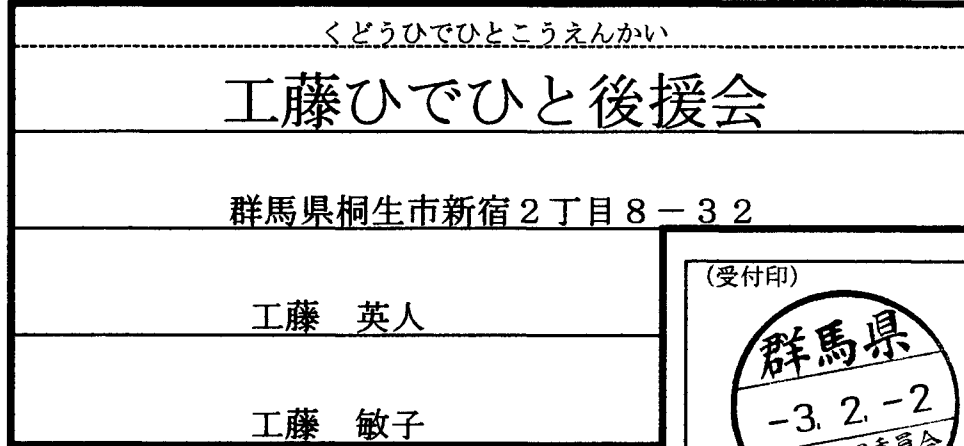 くどうひでひとこうえんかい
工藤ひでひと後援会
群馬県桐生市新宿２丁目８－３２
工藤　英人
工藤　敏子
(受付印)
群馬県
-3. 2. -2
委員会